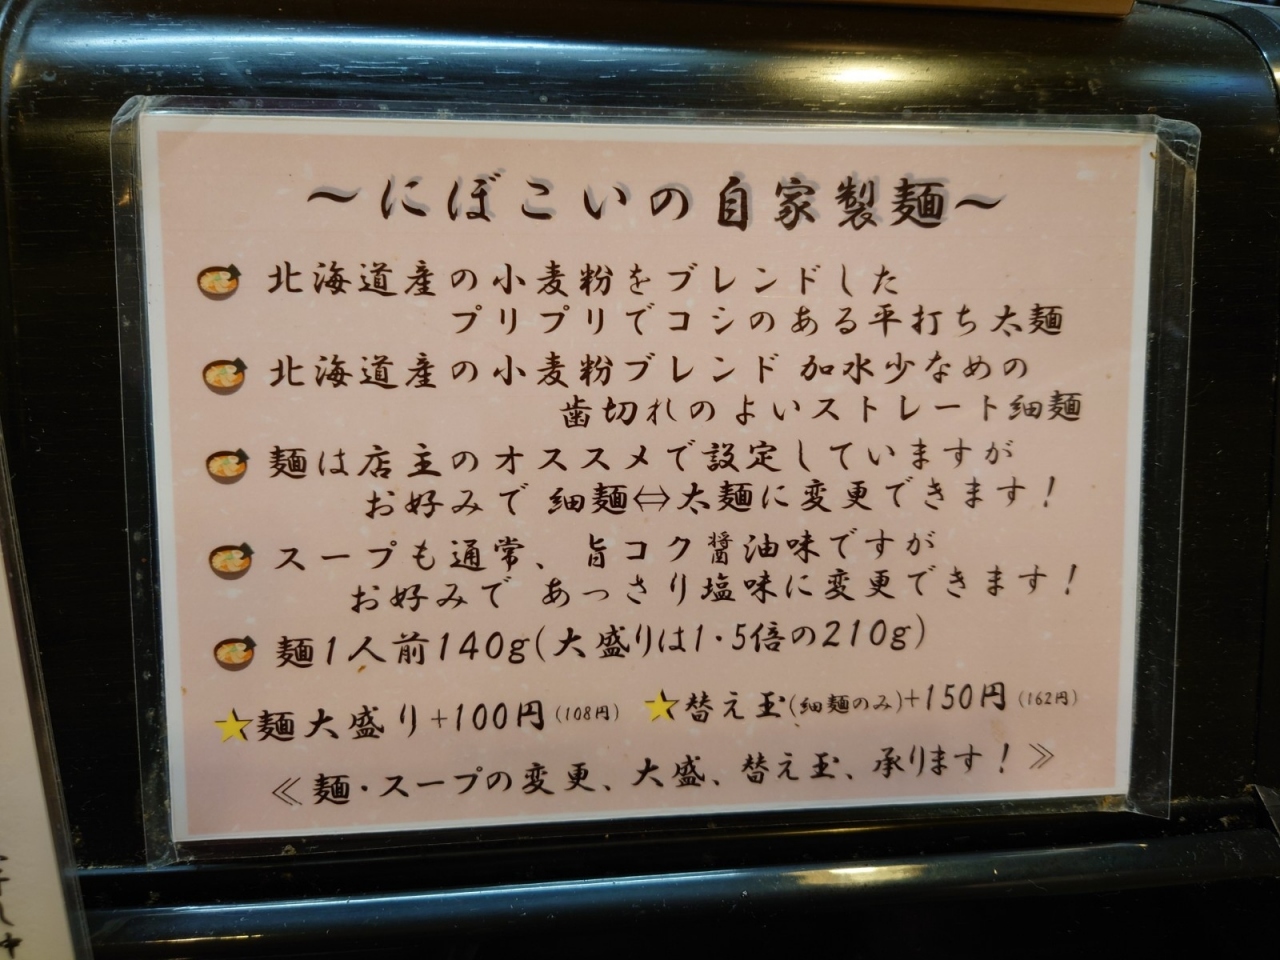 ～にぼこいの自家製麺～
北海道産の小麦粉をブレンドした
プリプリでコシのある平打ち太麺
北海道産の小麦粉ブレンド 加水少なめの
歯切れのよいストレート細麺
麺は店主のオススメで設定していますが
お好みで 細麺⇔太麺に変更できます！
スープも通常、旨コク醤油味ですが
お好みで あっさり塩味に変更できます！
麺1人前140g(大盛りは1・5倍の210g)
麺大盛り+100円(108円) 替え玉(細麺のみ)+150円(162円)
≪麺・スープの変更、大盛、替え玉、承ります！≫